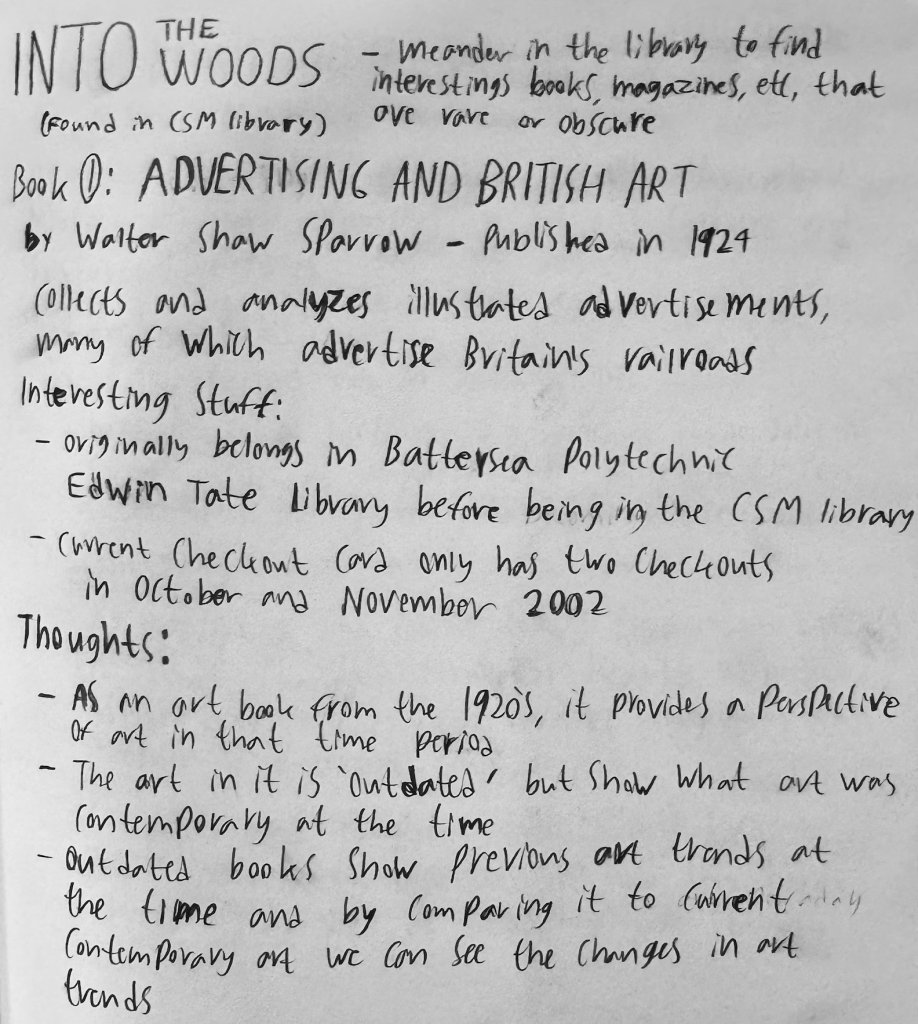 INTO THE WOODS - meander in the library to find
interestings books, magazines, etc, that
are rare or obscure
(Found in CSM library)
Book ①: ADVERTISING AND BRITISH ART
by Walter Shaw Sparrow - Published in 1924
Collects and analyzes illustrated advertisements,
many of which advertise Britain's railroads
Interesting Stuff:
- originally belongs in Battersea Polytechnic
Edwin Tate Library before being in the CSM library
- Current Checkout Card only has two Checkouts
in October and November 2002
Thoughts:
- As an art book from the 1920's, it provides a Perspective
of art in that time period
- The art in it is 'outdated' but show what art was
Contemporary at the time
- Outdated books show previous art trends at
the time and by comparing it to current
Contemporary art we can see the changes in art
trends